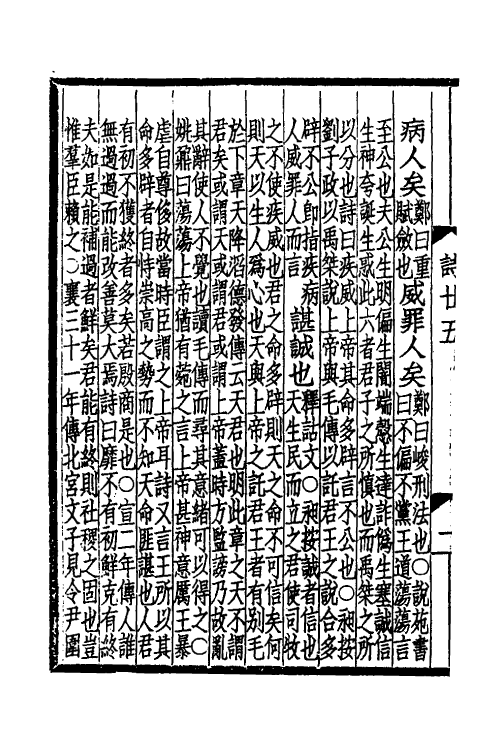 病人矣鄭曰重賦斂也威罪人矣鄭曰峻刑法也○說苑書曰不偏不黨王道蕩蕩言
至公也夫公生明偏生闇端愨生達詐僞生塞誠信
生神夸誕生惑此六者君子之所慎也而禹桀之所
以分也詩曰疾威上帝其命多辟言不公也○昶按
劉子政以禹桀說上帝與毛傳以託君王之說合多
辟不公卽指疾病人威罪人而言諶誠也釋詁文○昶按誠者信也天生民而立之君使司牧
之不使疾威也君之命多辟則天之命不可信矣何
則天以生人爲心也天與上帝之託君王者有别毛
於下章天降滔德發傳云天君也明此章之天不謂
君矣或謂天或謂君或謂上帝蓋時方監謗乃故亂
其辭使人不覺也讀毛傳而尋其意緒可以得之○
姚鼐曰蕩蕩上帝猶有菀之言上帝甚神意厲王暴
虐自尊侈故當時臣謂之上帝耳詩又言王所以其
命多辟者自恃崇高之勢而不知天命匪諶也人君
有初不獲終者多矣若殷商是也○宣二年傳人誰
無過過而能改善莫大焉詩曰靡不有初鮮克有終
夫如是能補過者鮮矣君能有終則社稷之固也豈
惟羣臣賴之○襄三十一年傳北宮文子見令尹圍
詩廿五
一